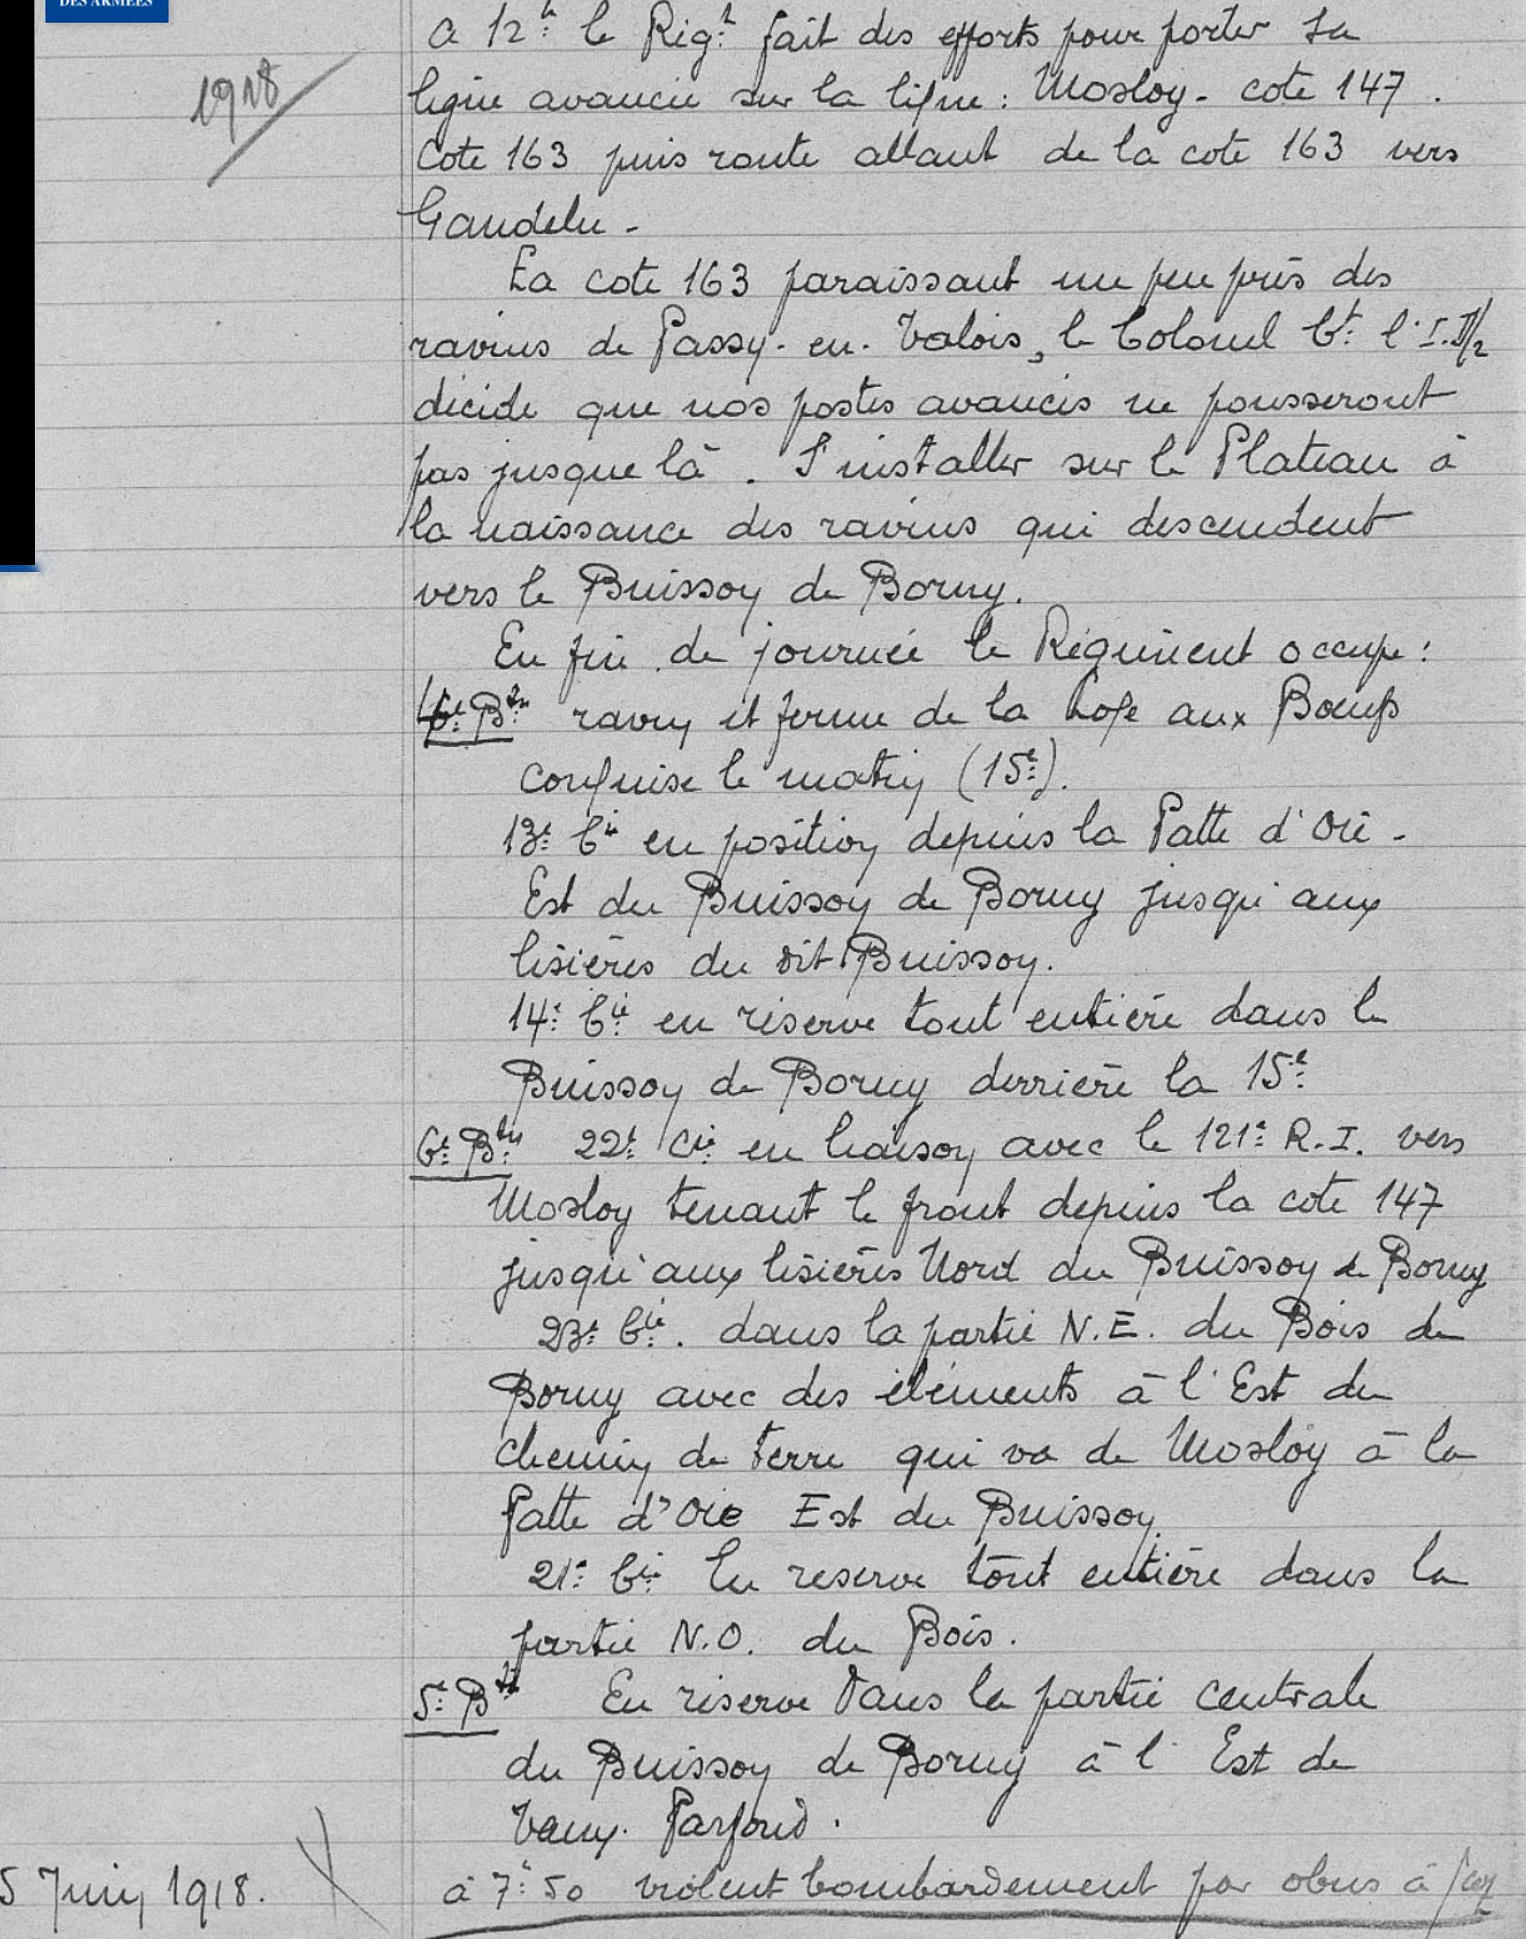 DES ARMÉES
1918
à 12h le Rég.t fait des efforts pour porter sa
ligne avancée sur la ligne : Mosloy - cote 147.
Cote 163 puis route allant de la cote 163 vers
Gandelu -
La cote 163 paraissant un peu près des
ravins de Passy-en-Valois, le Colonel Ct. l'I.D/2
décide que nos postes avancés ne pousseront
pas jusque là. S'installer sur le Plateau à
la naissance des ravins qui descendent
vers le Buisson de Borny.
En fin de journée le Régiment occupe :
4e Bon ravin et ferme de la Loge aux Boeufs
conquise le matin (15e).
13e Cie en position depuis la Patte d'Oie -
Est du Buisson de Borny jusqu'aux
lisières du dit Buisson.
14e Cie en réserve tout entière dans le
Buisson de Borny derrière la 15e
6e Bon 22e Cie en liaison avec le 121e R.I. vers
Mosloy tenant le front depuis la cote 147
jusqu'aux lisières Nord du Buisson de Borny
23e Cie. dans la partie N.E. du Bois de
Borny avec des éléments à l'Est du
chemin de terre qui va de Mosloy à la
Patte d'Oie Est du Buisson.
21e Cie En réserve tout entière dans la
partie N.O. du Bois.
5e Bon En réserve dans la partie centrale
du Buisson de Borny à l'Est de
Vaux-Parfond.
5 Juin 1918.
à 7h50 violent bombardement par obus à gaz